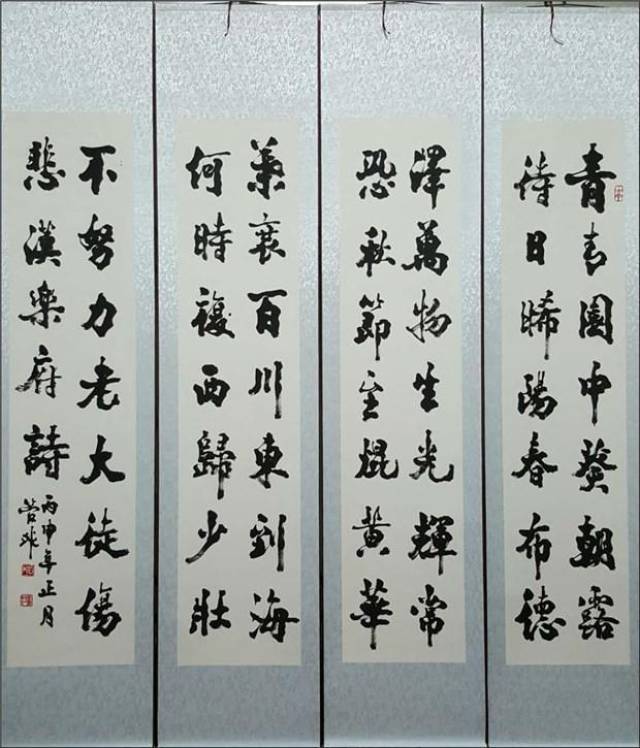 青青園中葵朝露
待日晞陽春布德
澤萬物生光輝常
恐秋節至焜黄華
葉衰百川東到海
何時複西歸少壯
不努力老大徒傷
悲漢樂府詩
丙申年正月